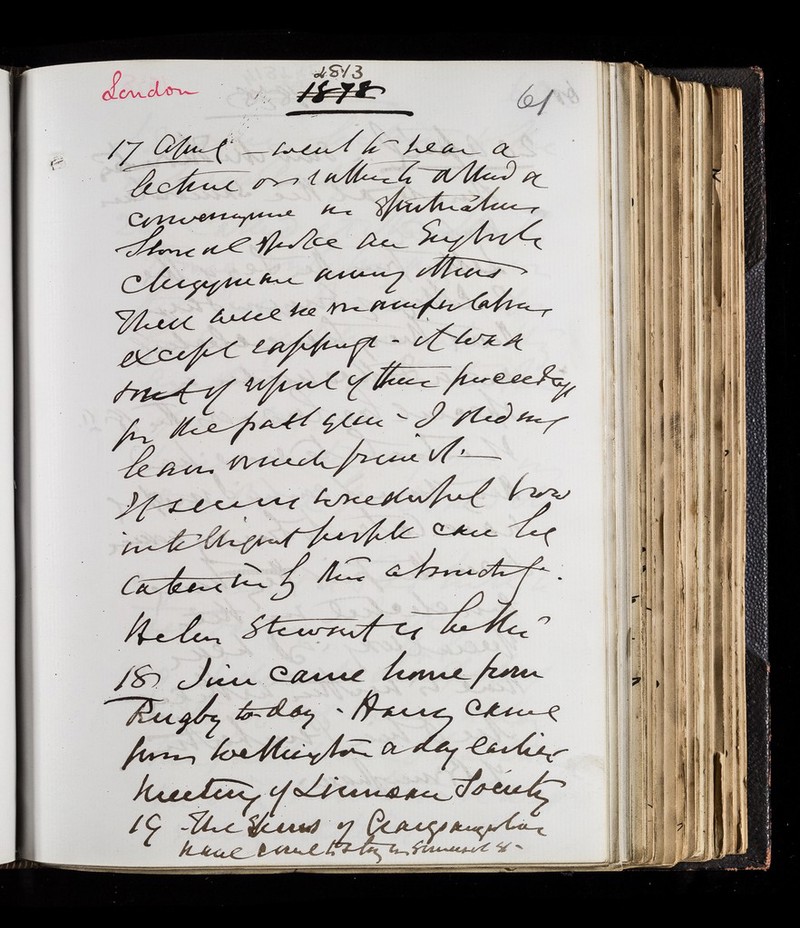 London
1878
61
17 April – went to hear a
lecture or rather to attend a
on Spiritualism
an English
clergyman among others
There were no manifestations
except rappings – it was a
sort of report of their proceedings
for the past year – I did not
learn much from it. –
It seems wonderful how
intelligent people can be
taken in by this absurdity.
Helen Stewart is better
18 Jim came home from
Rugby to-day – Harry came
from Wellington a day earlier
Meeting of Linnean Society
19 – The of
have come to stay in